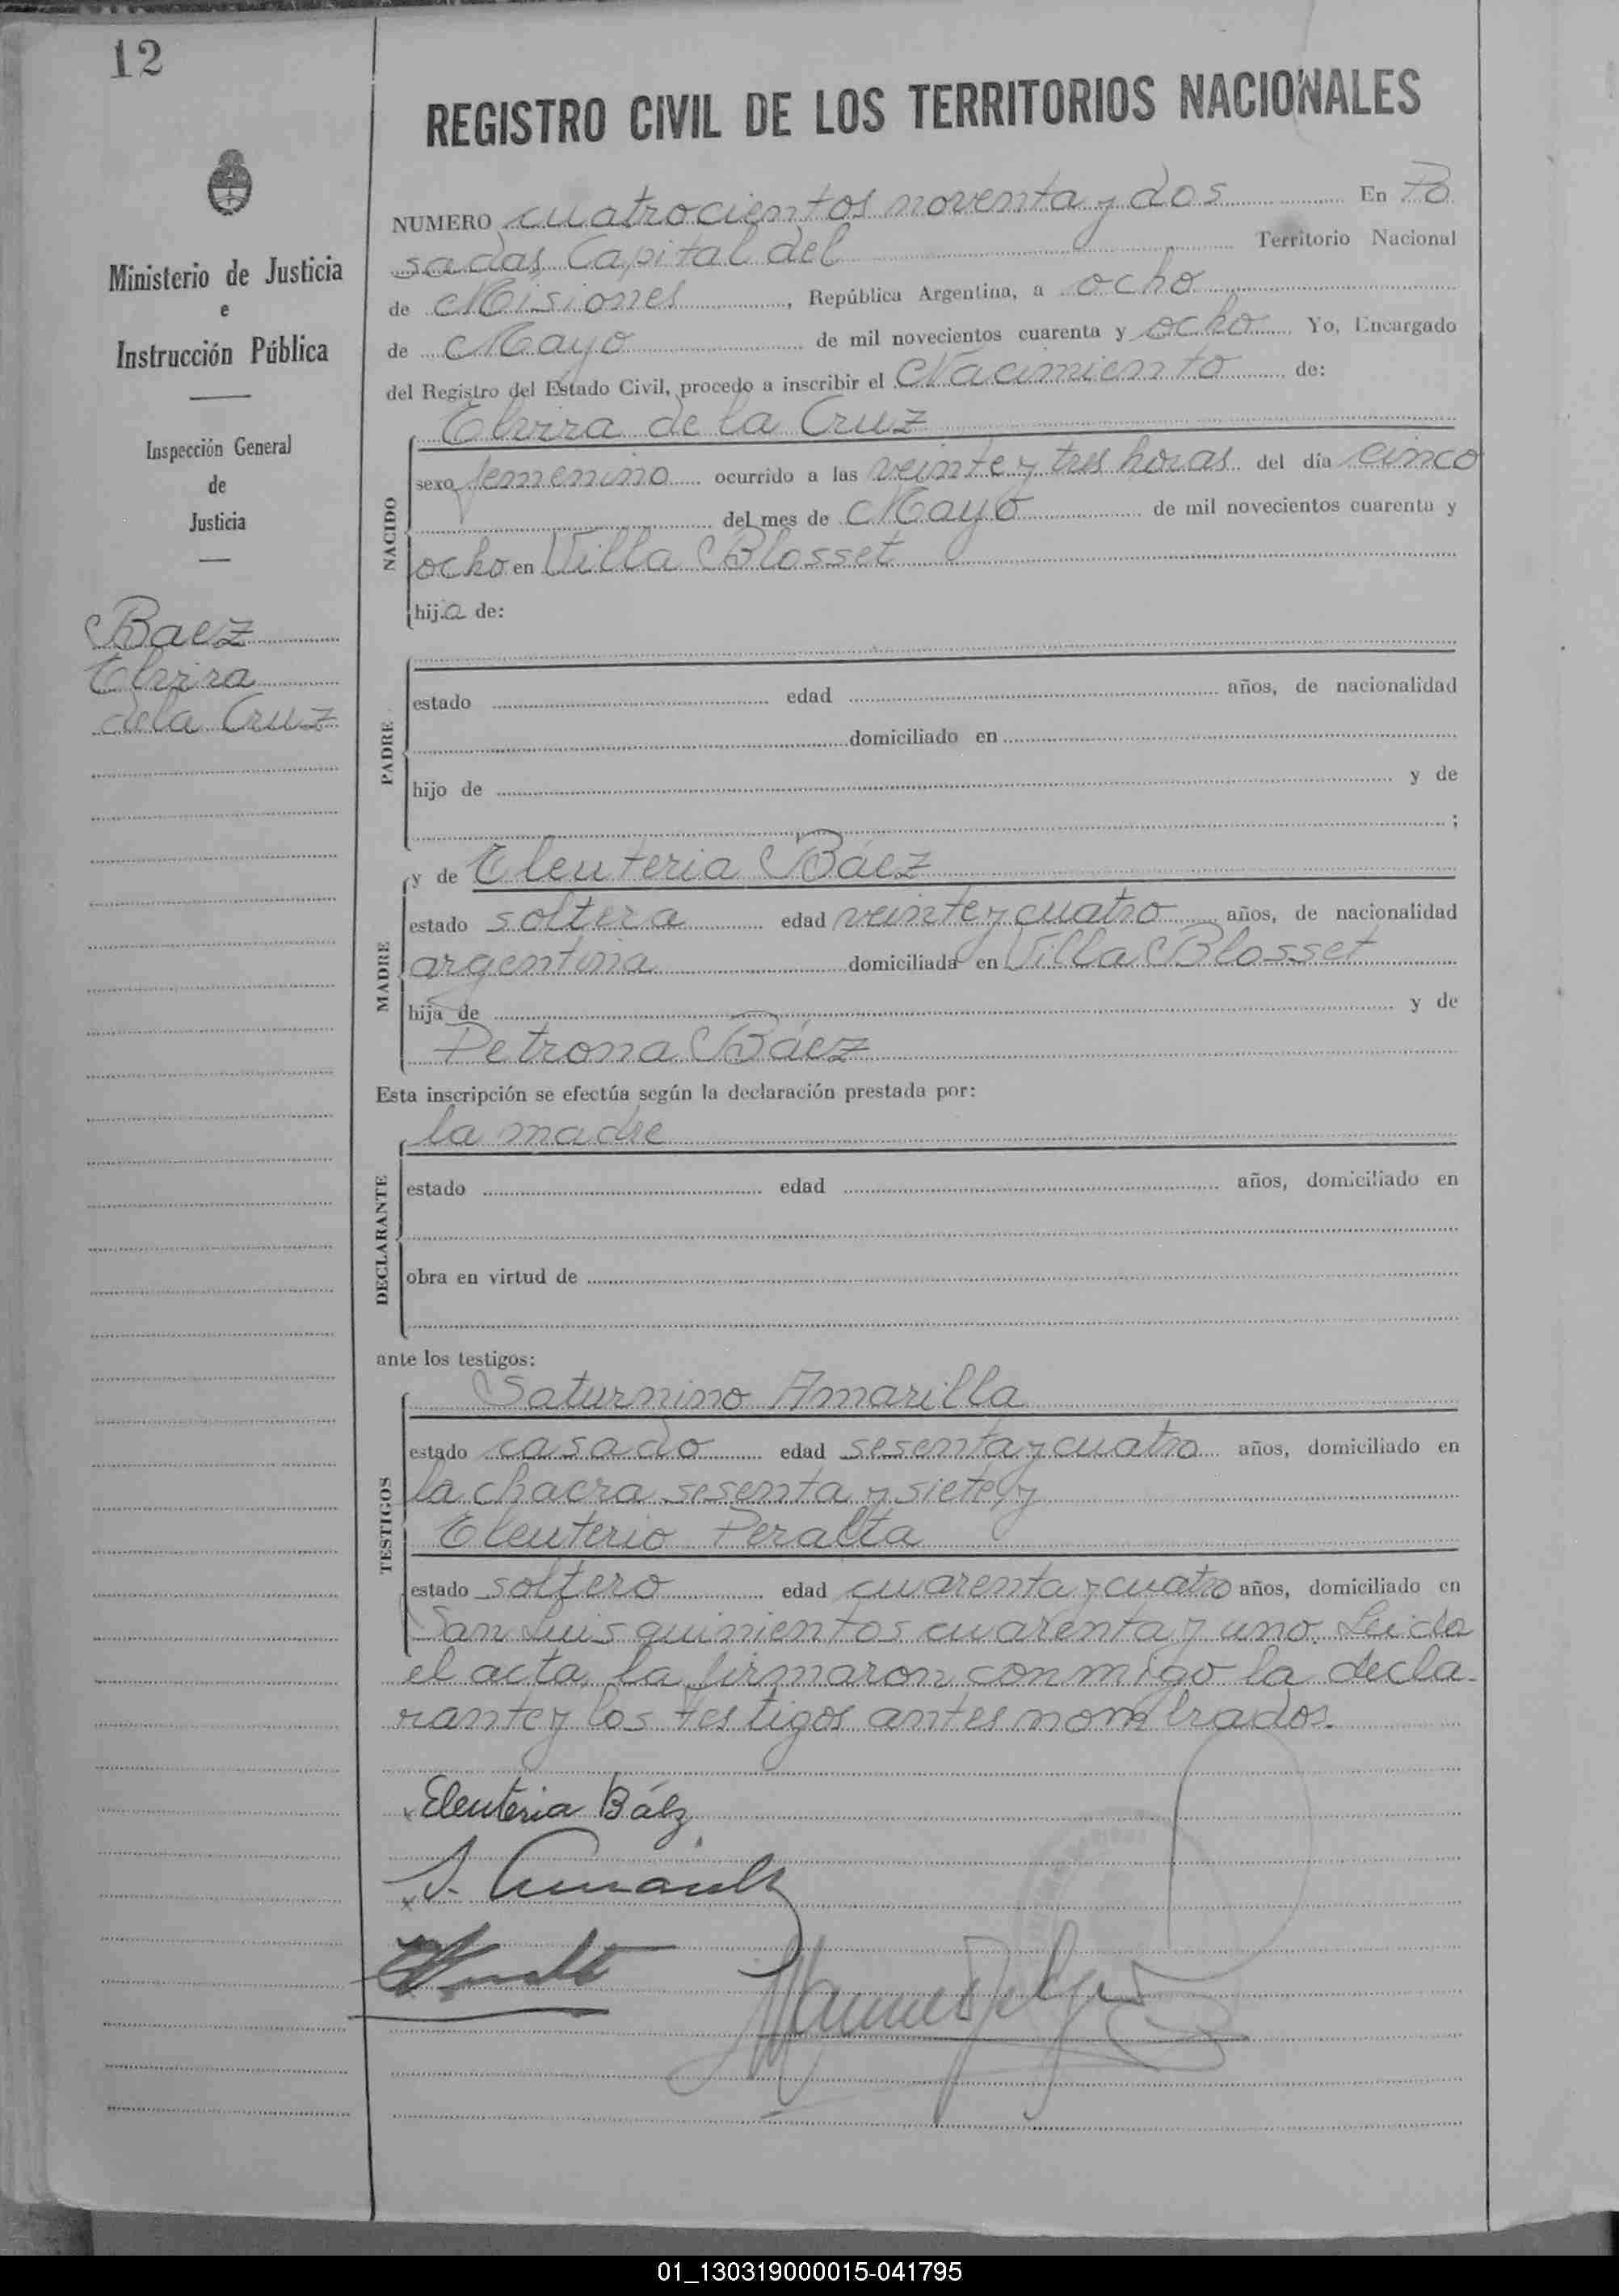 12
REGISTRO CIVIL DE LOS TERRITORIOS NACIONALES
Ministerio de Justicia
e
Instrucción Pública
Inspección General
de
Justicia
Baez
Elvira
de la Cruz
NUMERO cuatrocientos noventa y dos En Po
sadas, Capital del Territorio Nacional
de Misiones, República Argentina, a ocho
de Mayo de mil novecientos cuarenta y ocho Yo, Encargado
del Registro del Estado Civil, procedo a inscribir el Nacimiento de:
NACIDO
Elvira de la Cruz
sexo femenino ocurrido a las veinte y tres horas del día cinco
del mes de Mayo de mil novecientos cuarenta y
ocho en Villa Blosset
hija de:
PADRE
estado edad años, de nacionalidad
domiciliado en
hijo de y de
;
MADRE
y de Eleuteria Báez
estado soltera edad veinte y cuatro años, de nacionalidad
argentina domiciliada en Villa Blosset
hija de y de
Petrona Báez
Esta inscripción se efectúa según la declaración prestada por:
DECLARANTE
la madre
estado edad años, domiciliado en
obra en virtud de
ante los testigos:
TESTIGOS
Saturnino Amarilla
estado casado edad sesenta y cuatro años, domiciliado en
la chacra sesenta y siete y
Eleuterio Peralta
estado soltero edad cuarenta y cuatro años, domiciliado en
San Luis quinientos cuarenta y uno. Leida
el acta, la firmaron conmigo la decla-
rante y los testigos antes nombrados.
Eleuteria Báez
S. Amarilla
01_130319000015-041795